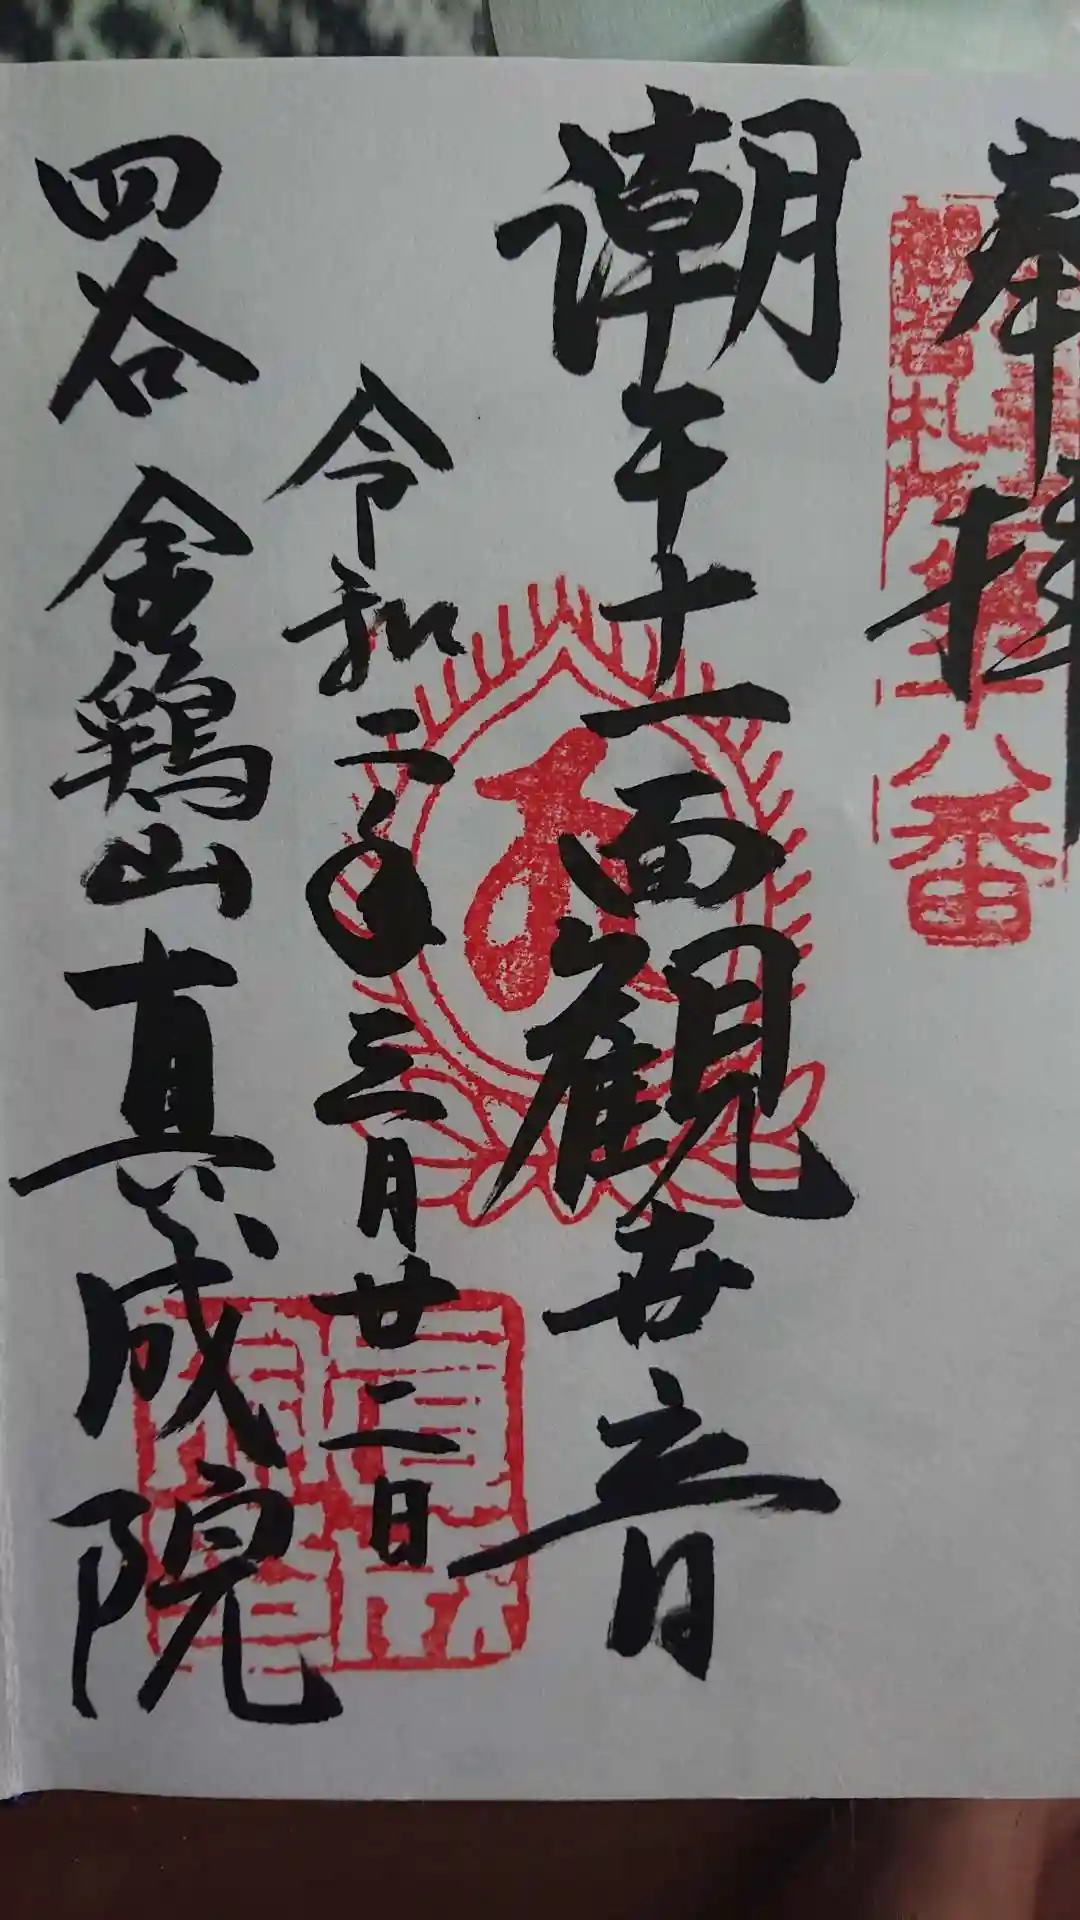 奉拝
潮干十一面観世音
令和二年三月廿二日
四谷 金鶏山真成院
札所第十八番